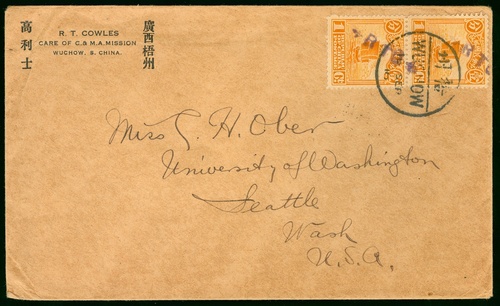 高利士
R. T. COWLES
CARE OF C. & M. A. MISSION
WUCHOW, S. CHINA.
廣西梧州
WUCHOW
Miss C. H. Ober
University of Washington
Seattle
Wash
U.S.A.